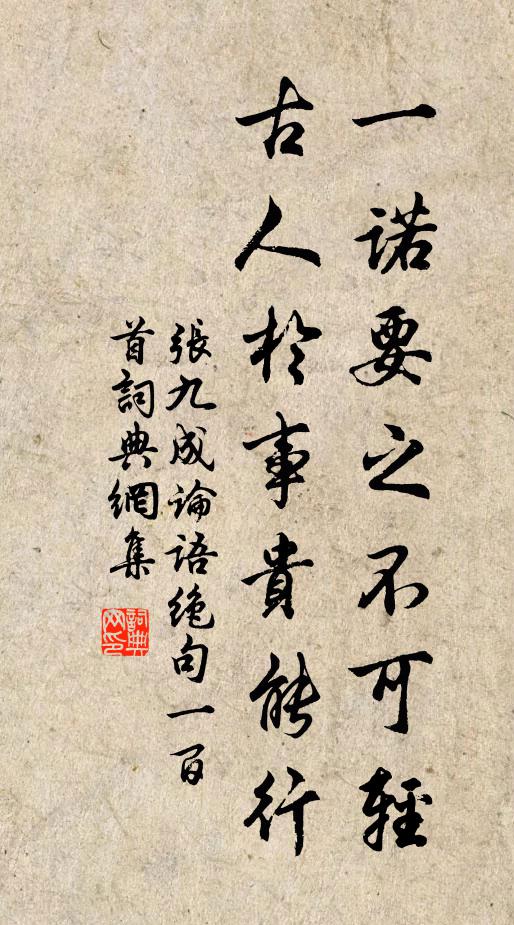 一諾要之不可輕
古人於事貴能行
張九成論語絶句一百
首詞典網集
詞典
网印